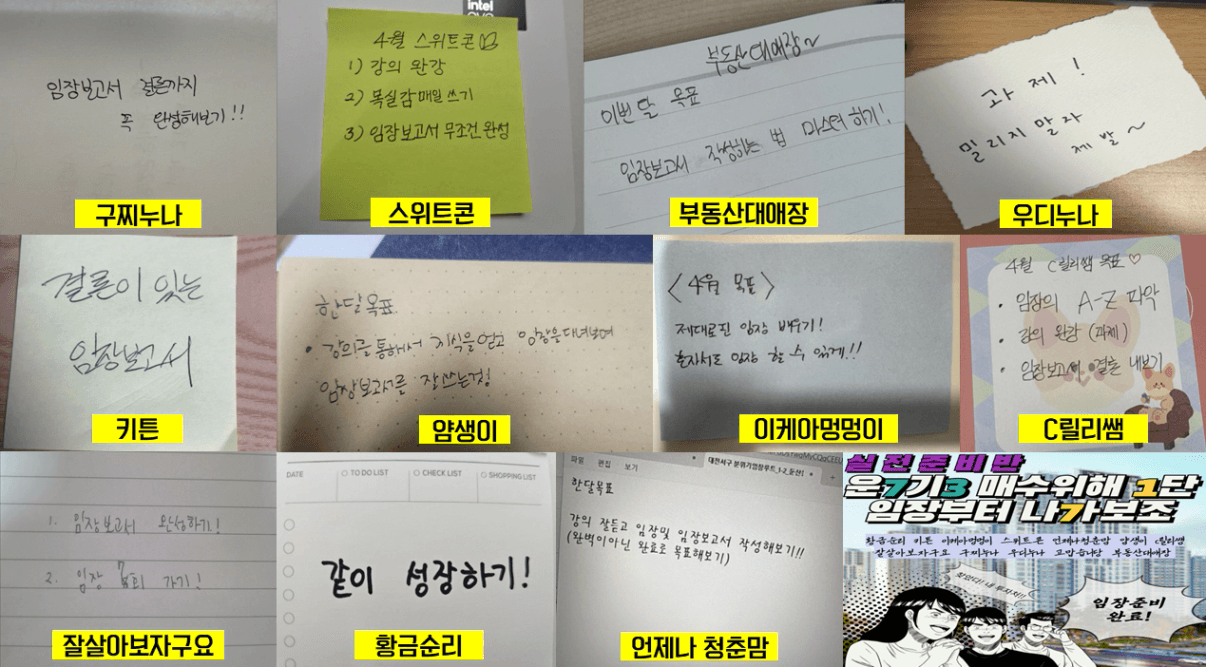 임장보고서 결론까지
꼭 완성해보기!!
구찌누나
intel
4월 스위트콘
1) 강의 완강
2) 목실감 매일 쓰기
3) 임장보고서 무조건 완성
스위트콘
부동산대애장~
이번달 목표
임장보고서 작성하는 법 마스터하기!
부동산대애장
과제!
밀리지 말자
제발~
우디누나
결론이 있는
임장보고서
키튼
한달목표
• 강의를 통해서 지식을 얻고 임장을 다녀보며
임장보고서를 잘쓰는것
얌생이
<4월 목표>
제대로된 임장 배우기!
혼자서도 임장 할 수 있게!!
이케아멍멍이
4월 C릴리쌤 목표♡
• 임장의 A-Z 파악
강의 완강 (과제)
• 임장보고서 결론 내보기
C릴리쌤
1. 임장보고서 완성하기!
2. 임장 가기!
잘살아보자구요
DATE
TO DO LIST
CHECK LIST
SHOPPING LIST
같이 성장하기!
황금순리
파일 편집 보기
대전서구 분위기임장루트_1-2_둔산1
한달목표
강의 잘듣고 임장및 임장보고서 작성해보기!!
(완벽이아닌 완료로 목표해보기)
언제나 청춘맘
실전준비반
운7기3 매수위해 1단
임장부터 나7가보조
황금순리 키튼 이케아멍멍이 스위트콘 언제나청춘맘 얌생이 c릴리쌤
잘살아보자구요 구찌누나 우디누나 부동산대애장
찾았다! 내 투자처!!
임장준비
완료!